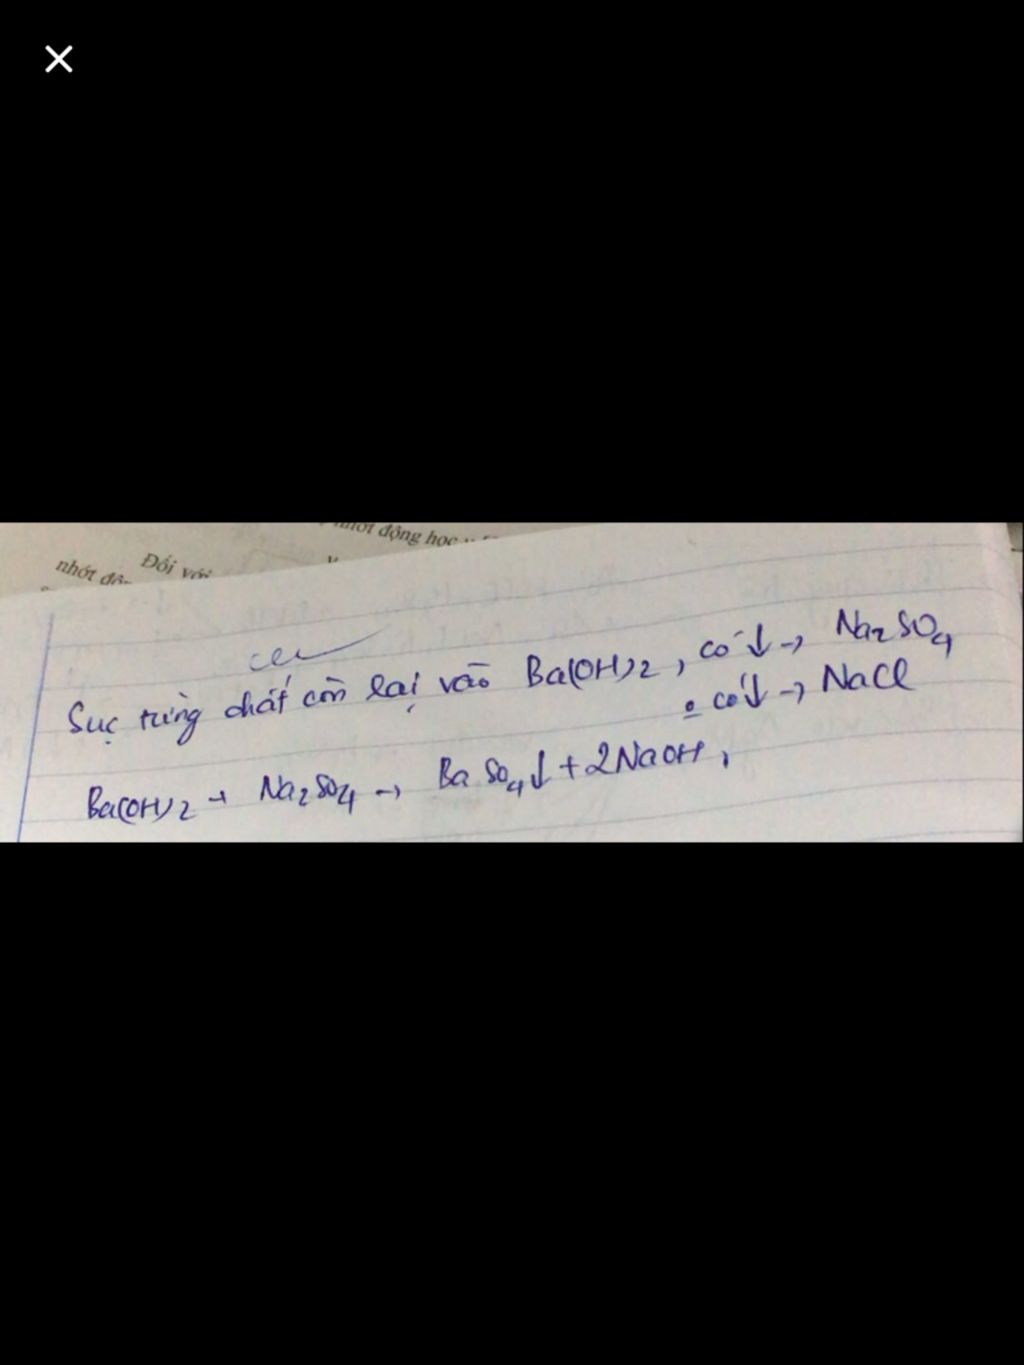 nhớt động học
nhớt độ
Đối với
Sục từng chất còn lại vào Ba(OH)2, có ↓ → Na2SO4
o có ↓ → NaCl
Ba(OH)2 + Na2SO4 → BaSO4↓ + 2NaOH,